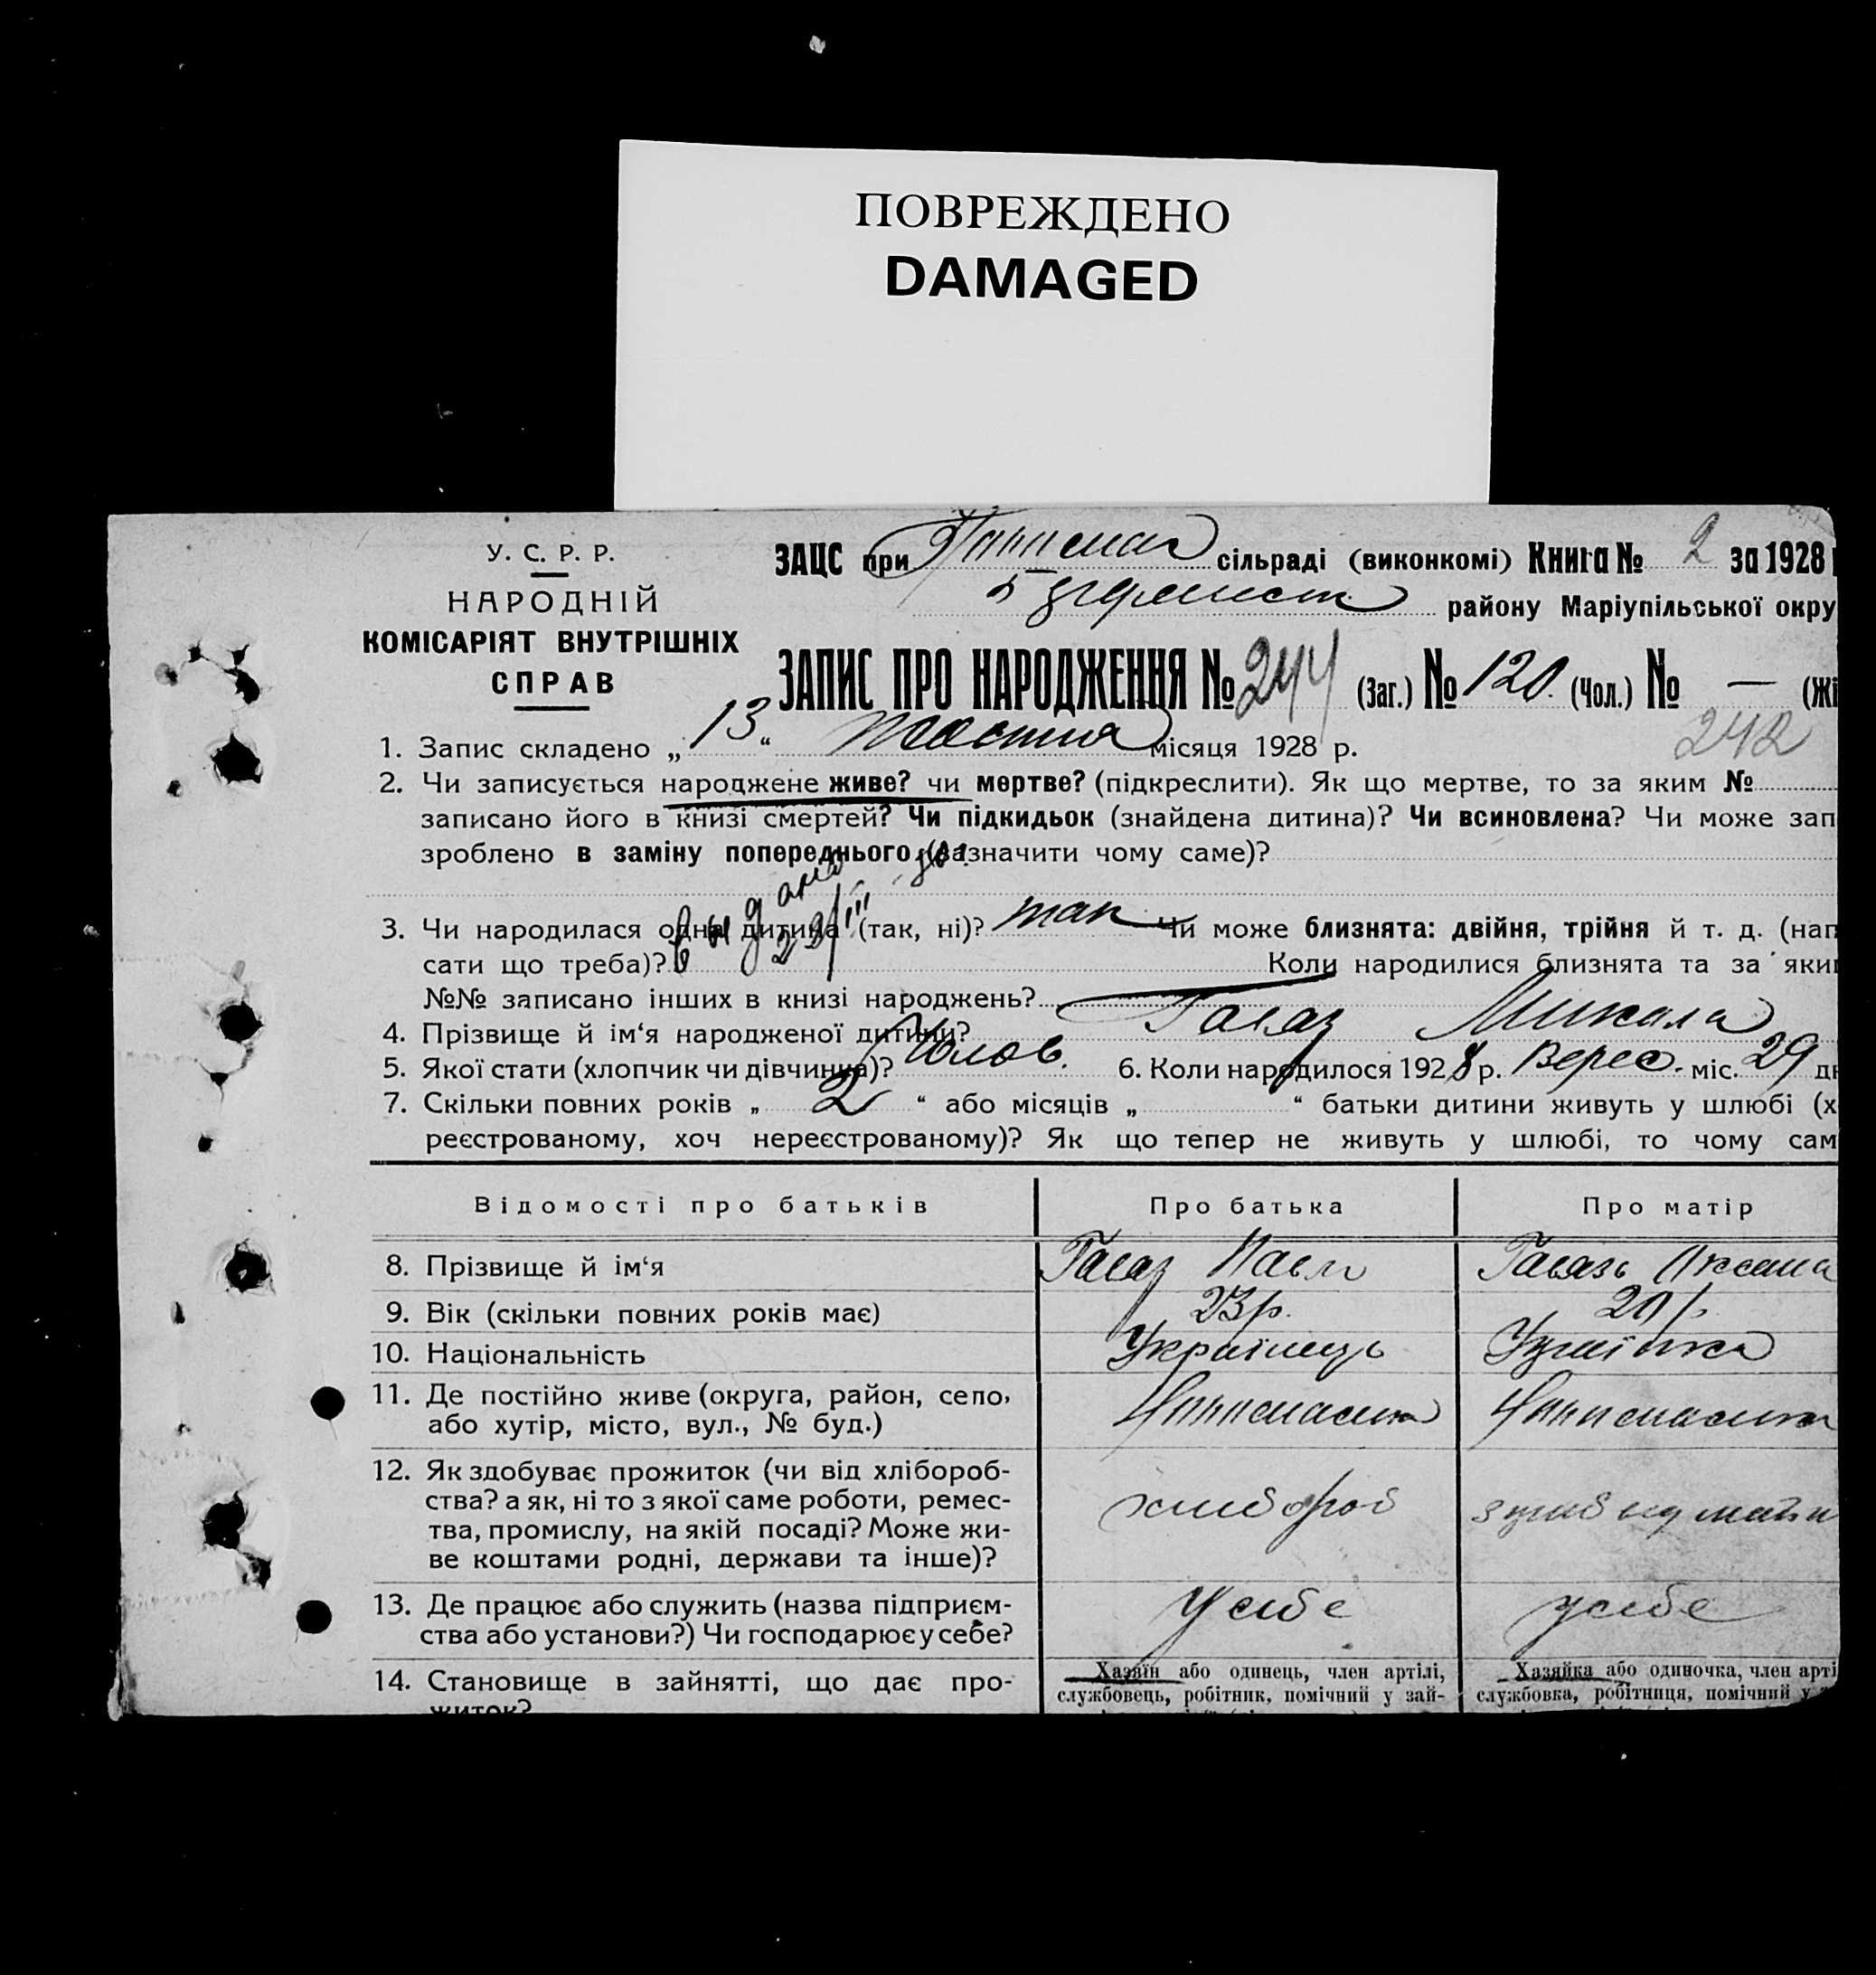 ПОВРЕЖДЕНО
DAMAGED
У. С. Р. Р.
НАРОДНІЙ
КОМІСАРІЯТ ВНУТРІШНІХ
СПРАВ
ЗАЦС при сільраді (виконкомі) Книга № 2 за 1928
району Маріупільської окру
ЗАПИС ПРО НАРОДЖЕННЯ № 244 (Заг.) № 120. (Чол.) № — (Жі
242
1. Запис складено „ 13 “ Жовтня місяця 1928 р.
2. Чи записується народжене живе? чи мертве? (підкреслити). Як що мертве, то за яким №
записано його в книзі смертей? Чи підкидьок (знайдена дитина)? Чи всиновлена? Чи може зап
зроблено в заміну попереднього (зазначити чому саме)?
3. Чи народилася одна дитина (так, ні)? так Чи може близнята: двійня, трійня й т. д. (нап
сати що треба)? Коли народилися близнята та за яки
№№ записано інших в книзі народжень?
4. Прізвище й ім‘я народженої дитини? Микола
5. Якої стати (хлопчик чи дівчинка)? Чолов. 6. Коли народилося 1928 р. Верес. міс. 29 дн
7. Скільки повних років „ 2 “ або місяців „ “ батьки дитини живуть у шлюбі (х
реєстрованому, хоч нереєстрованому)? Як що тепер не живуть у шлюбі, то чому сам
Відомості про батьків Про батька Про матір
8. Прізвище й ім‘я Павло Оксана
9. Вік (скільки повних років має) 23 р. 20 р.
10. Національність Українець Українка
11. Де постійно живе (округа, район, село,
або хутір, місто, вул., № буд.)
12. Як здобуває прожиток (чи від хлібороб-
ства? а як, ні то з якої саме роботи, ремес-
тва, промислу, на якій посаді? Може жи-
ве коштами родні, держави та інше)?
хлибороб
13. Де працює або служить (назва підприєм-
ства або установи?) Чи господарює у себе?
У себе у себе
14. Становище в зайнятті, що дає про-
житок?
Хазяїн або одинець, член артілі,
службовець, робітник, помічний у зай-
Хазяйка або одиночка, член арті
службовка, робітниця, помічний у